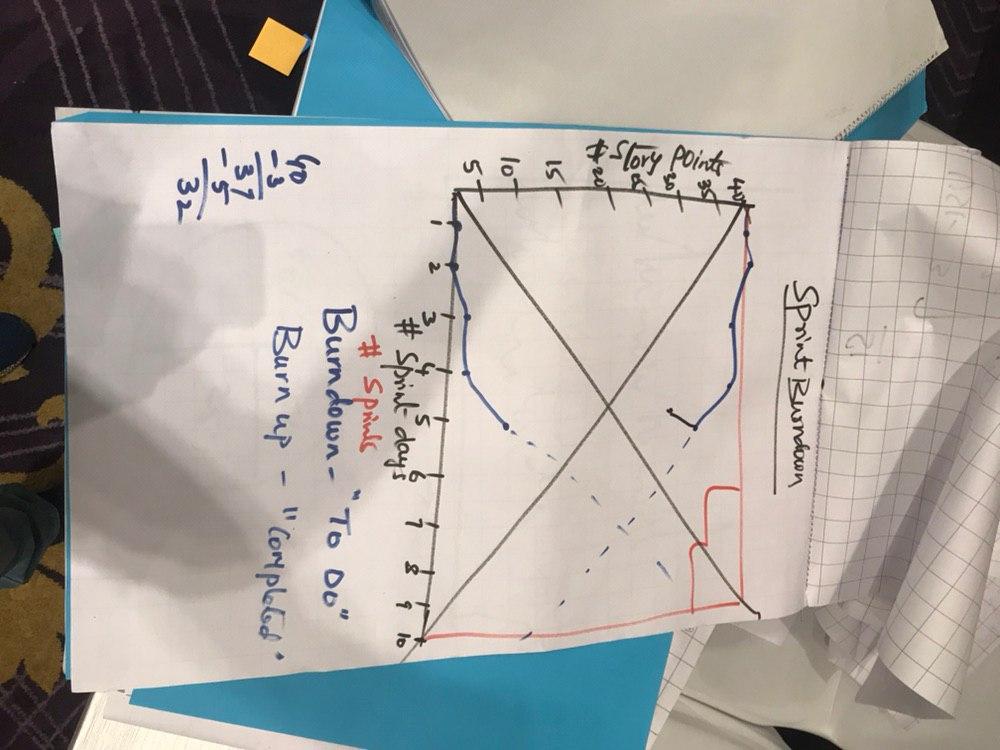 Sprint Burndown
# Story Points
40
35
30
25
20
15
10
5
1 2 3 4 5 6 7 8 9 10
# Sprint days
# Sprints
Burndown - "To Do"
Burn up - "Completed"
40
-3
37
-5
32